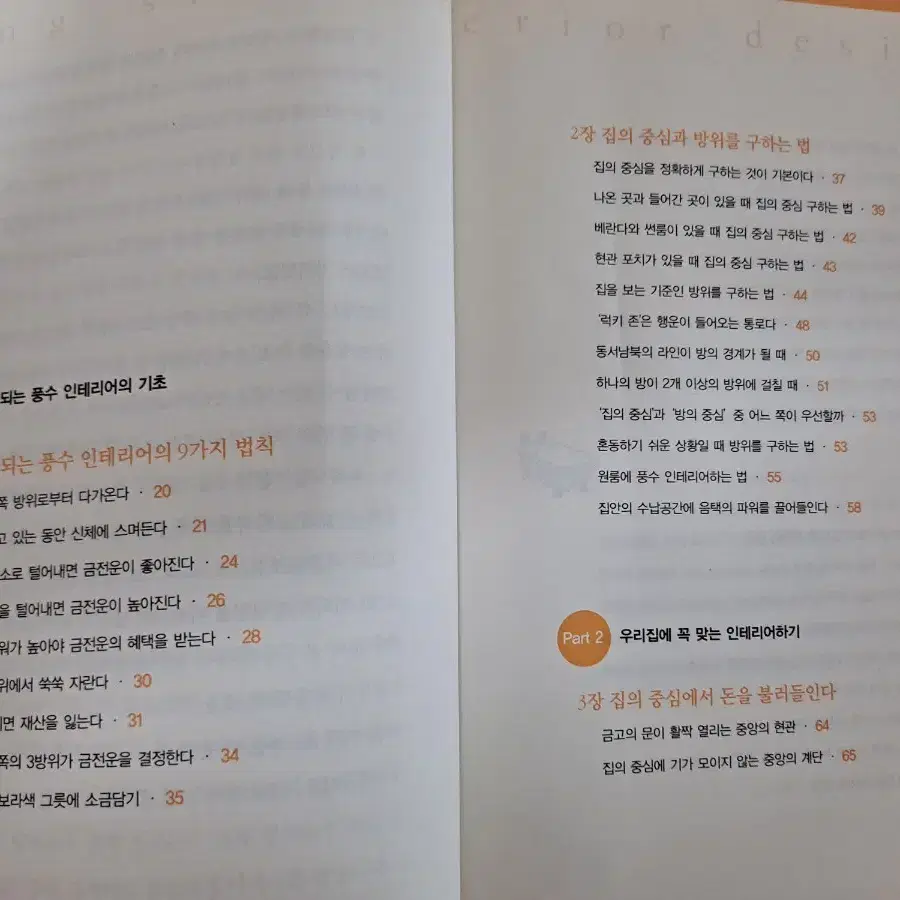 erior desi
되는 풍수 인테리어의 기초
되는 풍수 인테리어의 9가지 법칙
쪽 방위로부터 다가온다 · 20
고 있는 동안 신체에 스며든다 · 21
소로 털어내면 금전운이 좋아진다 · 24
을 털어내면 금전운이 높아진다 · 26
워가 높아야 금전운의 혜택을 받는다 · 28
위에서 쑥쑥 자란다 · 30
면 재산을 잃는다 · 31
쪽의 3방위가 금전운을 결정한다 · 34
보라색 그릇에 소금담기 · 35
2장 집의 중심과 방위를 구하는 법
집의 중심을 정확하게 구하는 것이 기본이다 · 37
나온 곳과 들어간 곳이 있을 때 집의 중심 구하는 법 · 39
베란다와 썬룸이 있을 때 집의 중심 구하는 법 · 42
현관 포치가 있을 때 집의 중심 구하는 법 · 43
집을 보는 기준인 방위를 구하는 법 · 44
'럭키 존'은 행운이 들어오는 통로다 · 48
동서남북의 라인이 방의 경계가 될 때 · 50
하나의 방이 2개 이상의 방위에 걸칠 때 · 51
'집의 중심'과 '방의 중심' 중 어느 쪽이 우선할까 · 53
혼동하기 쉬운 상황일 때 방위를 구하는 법 · 53
원룸에 풍수 인테리어하는 법 · 55
집안의 수납공간에 음택의 파워를 끌어들인다 · 58
Part 2 우리집에 꼭 맞는 인테리어하기
3장 집의 중심에서 돈을 불러들인다
금고의 문이 활짝 열리는 중앙의 현관 · 64
집의 중심에 기가 모이지 않는 중앙의 계단 · 65